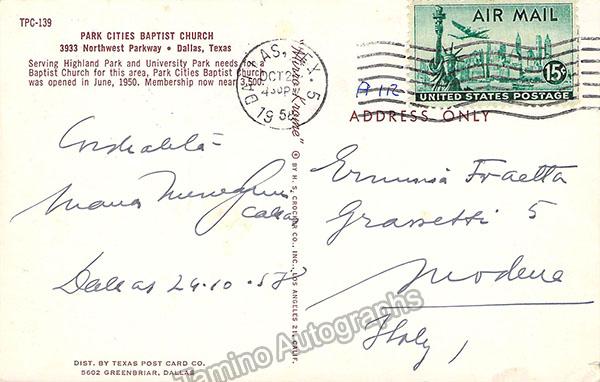 TPC-139
PARK CITIES BAPTIST CHURCH
3933 Northwest Parkway • Dallas, Texas
Serving Highland Park and University Park needs for a
Baptist Church for this area, Park Cities Baptist Church
was opened in June, 1950. Membership now near 3,500.
Cordialità
Maria Meneghini
Callas
Dallas 24-10-58
DIST. BY TEXAS POST CARD CO.
5602 GREENBRIAR, DALLAS
"Mirro-Krome"
© BY H. S. CROCKER CO., INC., LOS ANGELES 21, CALIF.
DALLAS, TEX. 5
OCT 2
430PM
1958
AIR MAIL
15¢
UNITED STATES POSTAGE
A 112
ADDRESS ONLY
Erminia Fraetta
Grassetti 5
Modena
Italy
Tamino Autographs